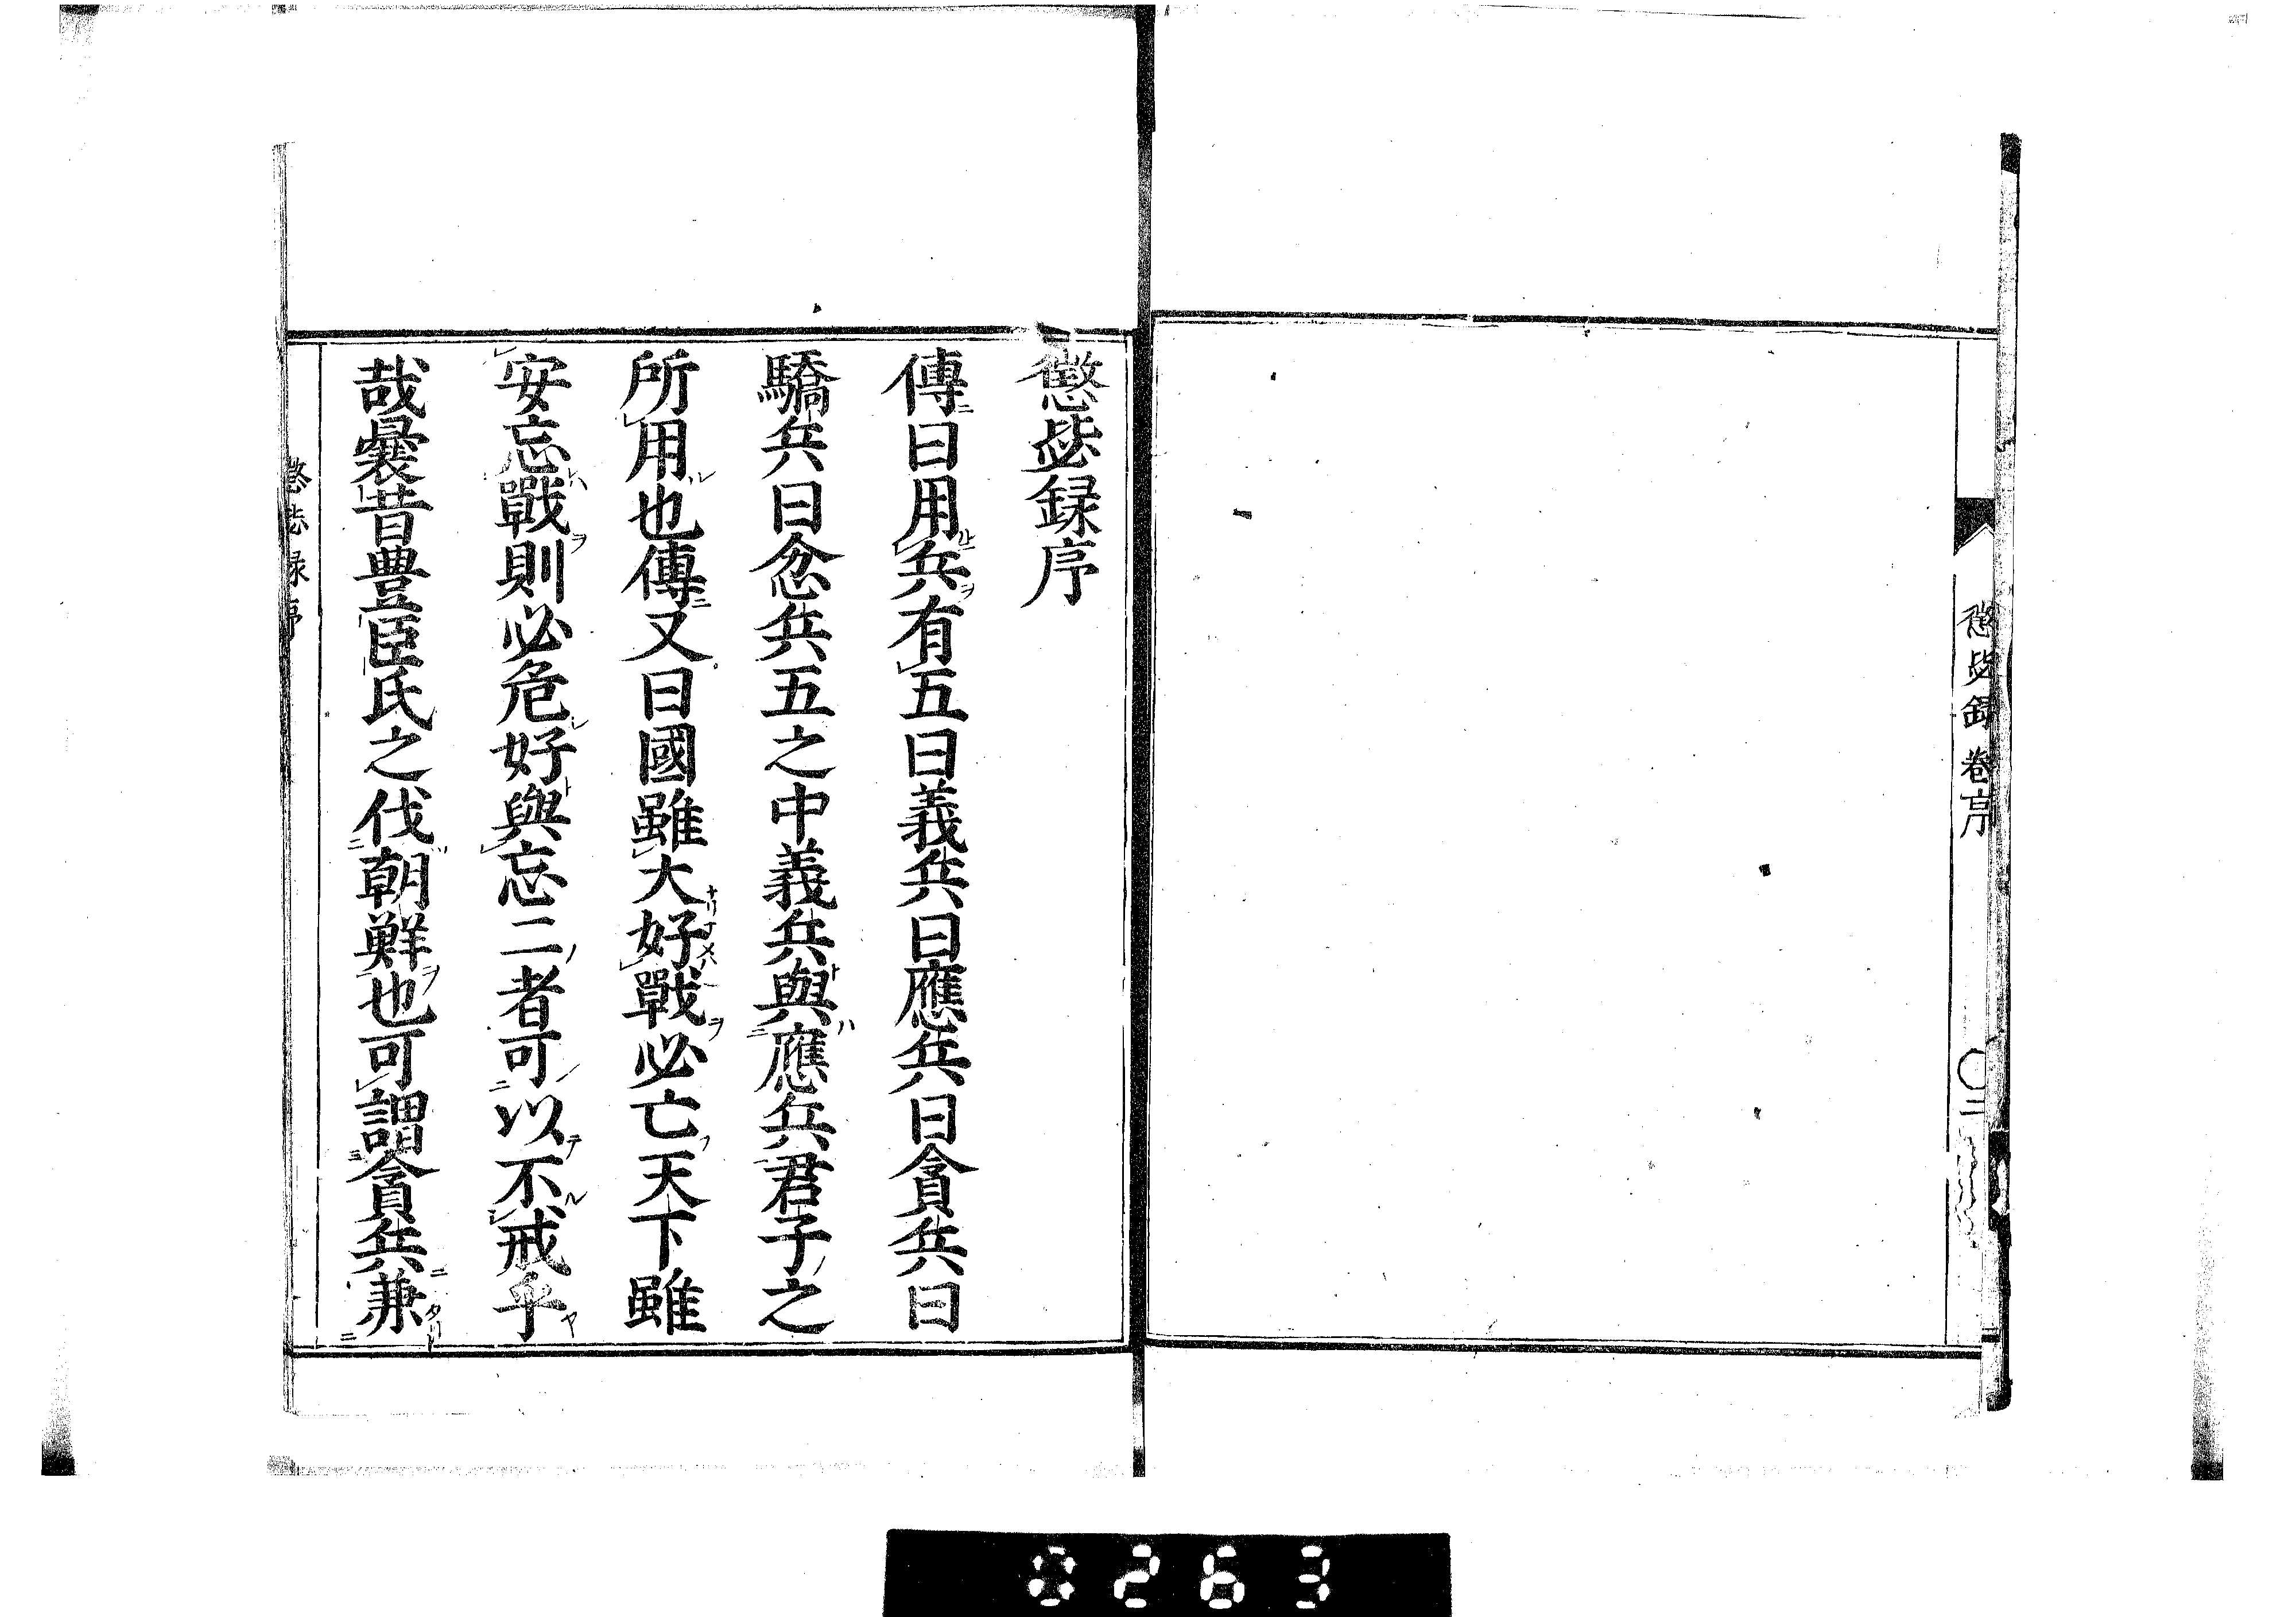 懲毖錄卷序
二
懲毖録序
傳曰用兵有五曰義兵曰應兵曰貪兵曰
驕兵曰忿兵五之中義兵與應兵君子之
所用也傳又曰國雖大好戰必亡天下雖
安忘戰則必危好與忘二者可以不戒乎
哉曩昔豊臣氏之伐朝鮮也可謂貪兵兼
懲毖録序
0263